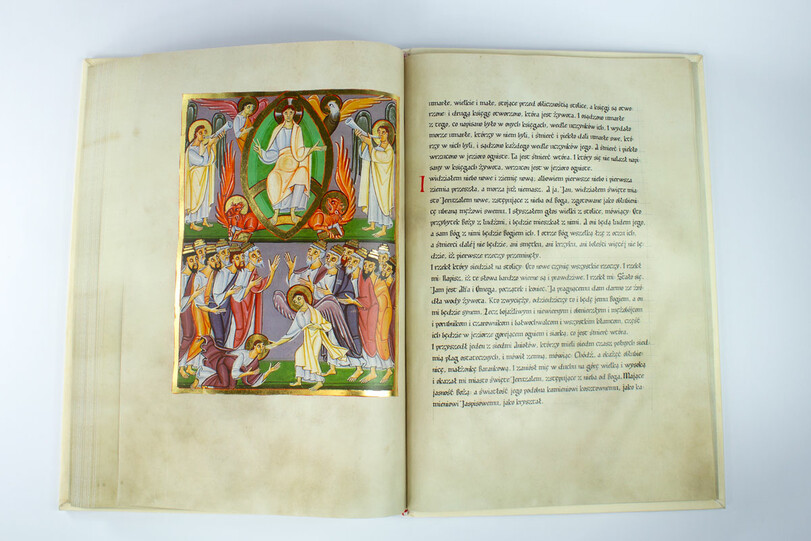 umarłe, wielkie i małe, stojące przed obliczością stolice, a księgi są otwo-
rzone: i druga księgę otworzono, która jest żywota. I sądzono umarłe
z tego, co napisano było w onych księgach, wedle uczynków ich. I wydało
morze umarłe, którzy w niem byli, i śmierć i piekło dali umarłe swe, któ-
rzy w nich byli, i sądzono każdego wedle uczynków jego. A śmierć i piekło
wrzucono w jezioro ogniste. Ta jest śmierć wtóra. I który się nie nalazł napi-
sany w księgach żywota, wrzucon jest w jezioro ogniste.
I widziałem niebo nowe i ziemię nową; albowiem pierwsze niebo i pierwsza
ziemia przeszła, a morza już niemasz. A ja, Jan, widziałem święte mia-
sto Jeruzalem nowe, zstępujące z nieba od Boga, zgotowane jako oblubieni-
cę ubraną mężowi swemu. I słyszałem głos wielki z stolice, mówiący: Oto
przybytek Boży z ludźmi, i będzie mieszkał z nimi. A oni będą ludem jego,
a sam Bóg z nimi będzie Bogiem ich. I otrze Bóg wszelką łzę z oczu ich,
a śmierci dalej nie będzie, ani smętku, ani krzyku, ani boleści więcej nie bę-
dzie, iż pierwsze rzeczy przeminęły.
I rzekł który siedział na stolicy: Oto nowe czynię wszystkie rzeczy. I rzekł
mi: Napisz, iż te słowa bardzo wierne są i prawdziwe. I rzekł mi: Stało się.
Jam jest Alfa i Omega, początek i koniec. Ja pragnącemu dam darmo ze źró-
dła wody żywota. Kto zwycięży, odziedziczy to i będę jemu Bogiem, a on
mi będzie synem. Lecz bojaźliwym i niewiernym i obmierzłym i mężobójcom
i porubnikom i czarownikom i bałwochwalcom i wszystkim kłamcom, część
ich będzie w jeziorze gorejącem ogniem i siarką; co jest śmierć wtóra.
I przyszedł jeden z siedmi Aniołów, którzy mieli siedem czasz pełnych sied-
mią plag ostatecznych, i mówił zemną, mówiąc: Chódź, a okażęć oblubie-
nicę, małżonkę Barankową. I zaniósł mię w duchu na górę wielką i wysoką
i okazał mi miasto święte Jeruzalem, zstępujące z nieba od Boga, Mające
jasność Bożą: a światłość jego podobna kamieniowi kosztownemu, jako ka-
mieniowi Jaspisowemu, jako kryształ.